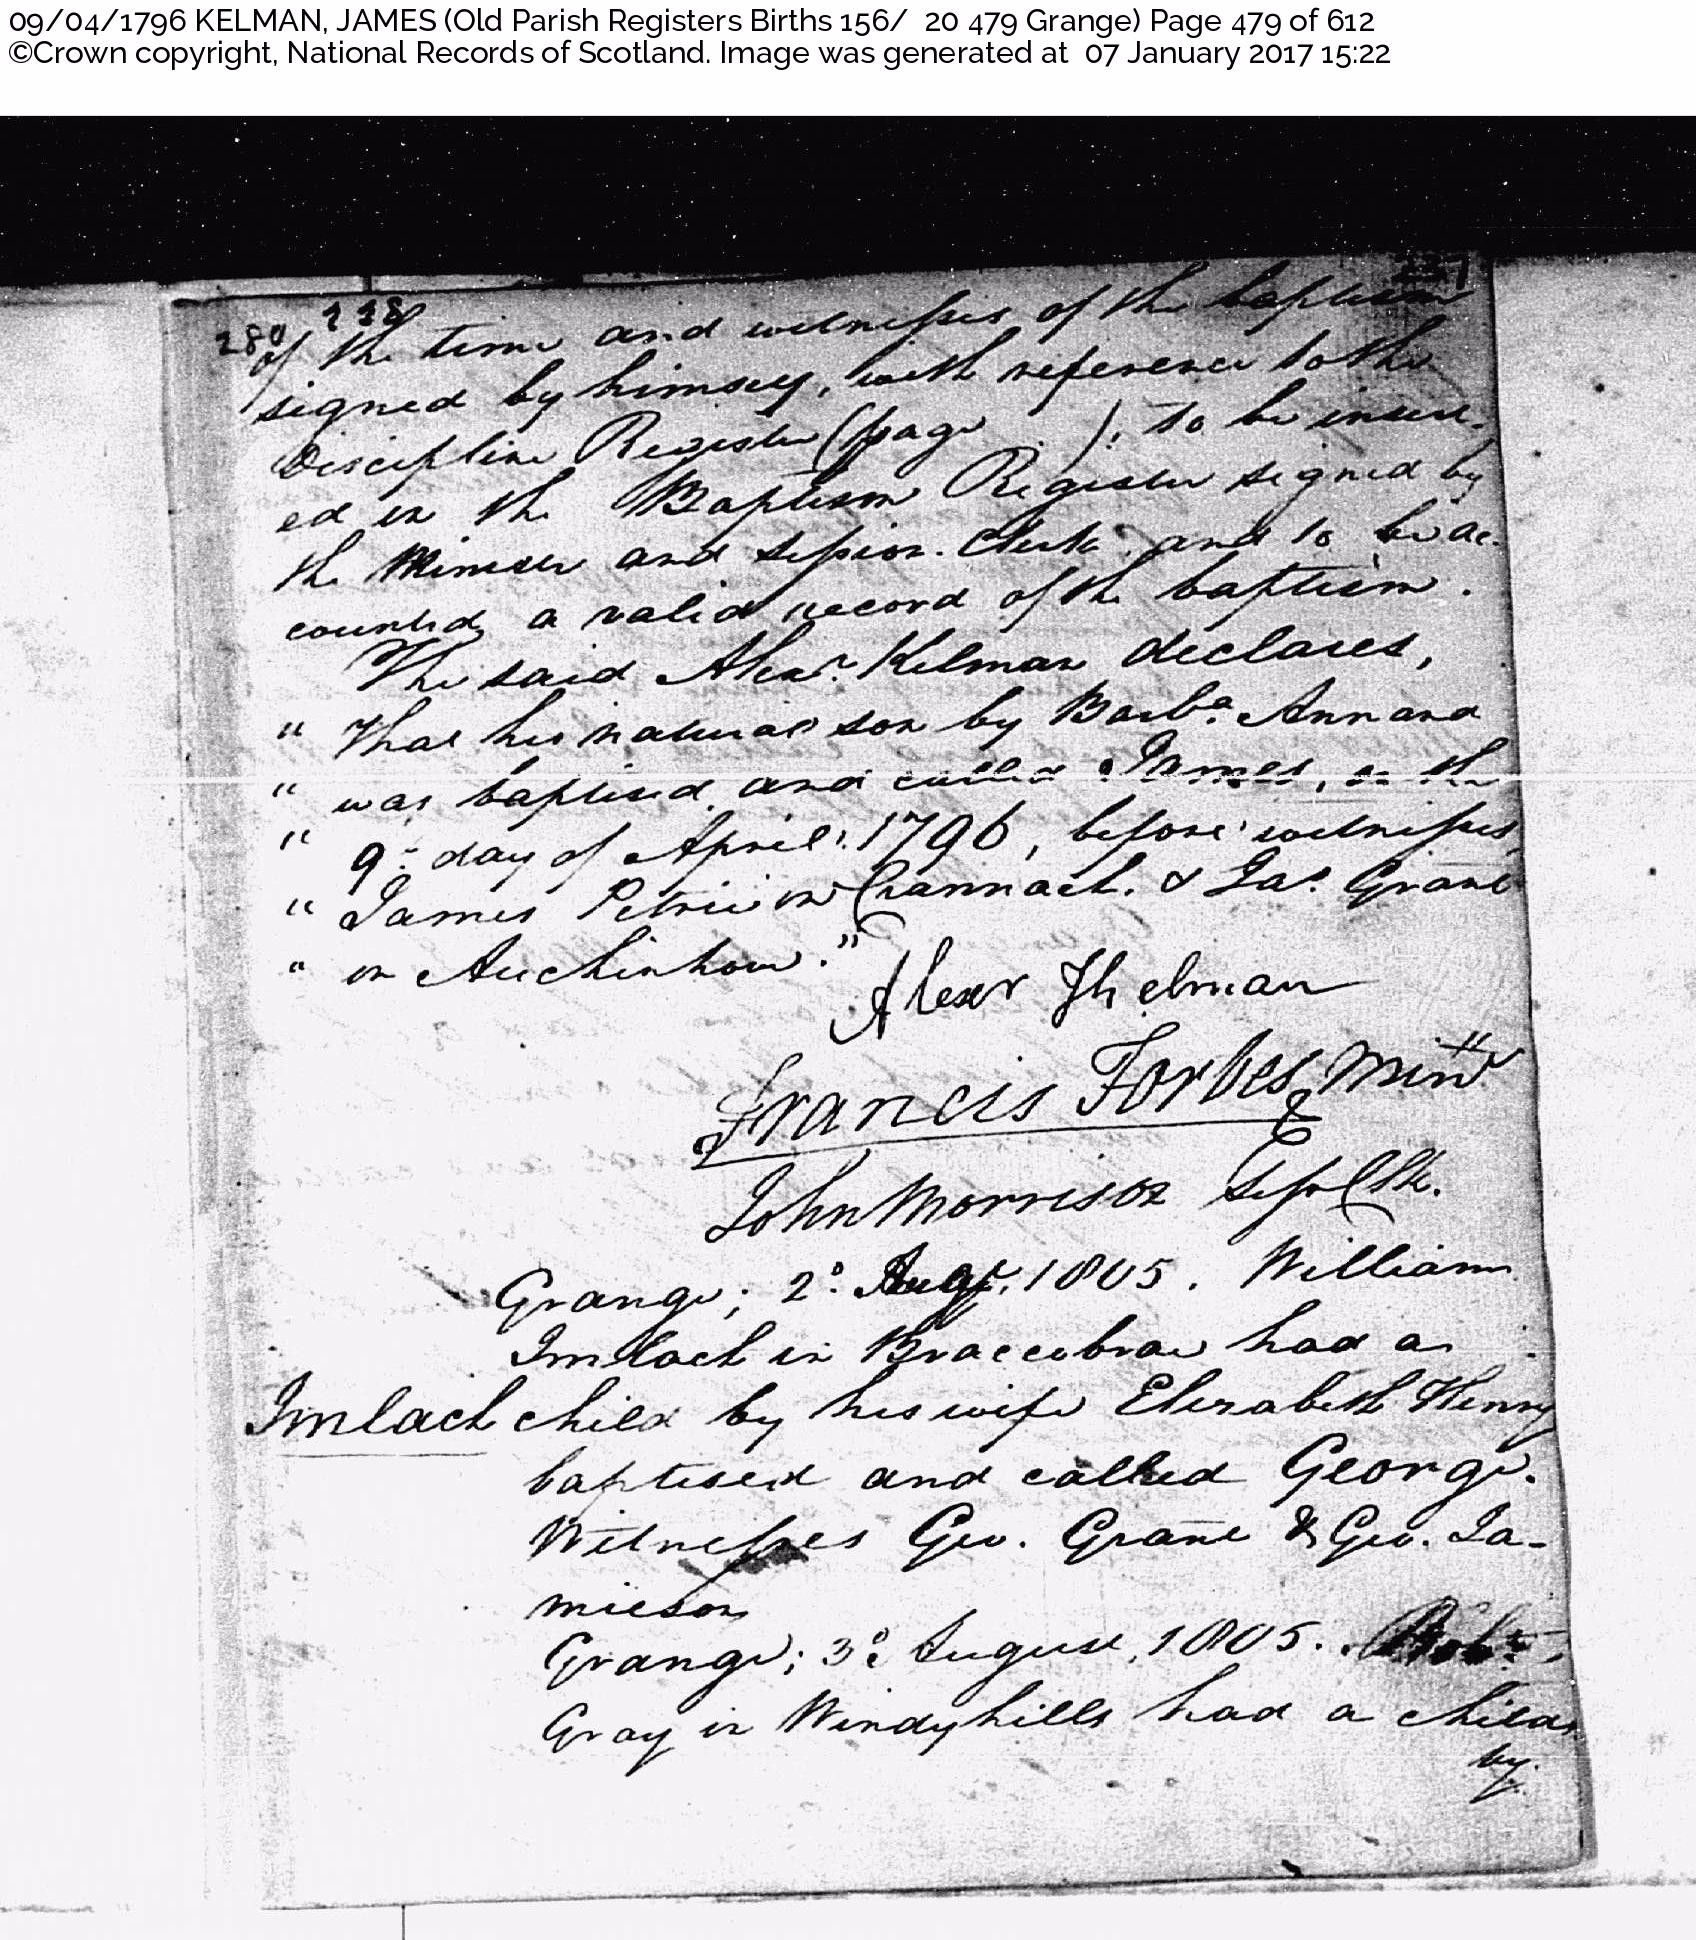 09/04/1796 KELMAN, JAMES (Old Parish Registers Births 156/ 20 479 Grange) Page 479 of 612
©Crown copyright, National Records of Scotland. Image was generated at 07 January 2017 15:22
280 228
of the time and witnesses of the baptism
signed by himself, with reference to the
Discipline Register (page ), to be insert-
ed in the Baptism Register signed by
the Minister and Session Clerk and to be ac-
counted a valid record of the baptism.
The said Alexr. Kelman declares,
" That his natural son by Barba. Annand
" was baptised and called James, on the
" 9th day of April 1796, before witnesses,
" James Petrie in Crannach. & Jas. Grant
" in Auchinhow."
Alexr Khelman
Francis Forbes, Minr
John Morrison Sess Clk.
Grange; 2d. Augt. 1805. William
Imlach in Braccobrae had a
Imlach child by his wife Elizabeth Henry
baptised and called George.
Witnesses Geo. Grant & Geo. Ja-
mieson
Grange; 3d. August, 1805. Robt.
Gray in Windyhills had a child
by